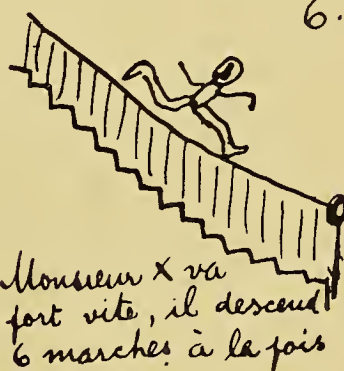 6.
Monsieur X va
fort vite, il descend
6 marches à la fois